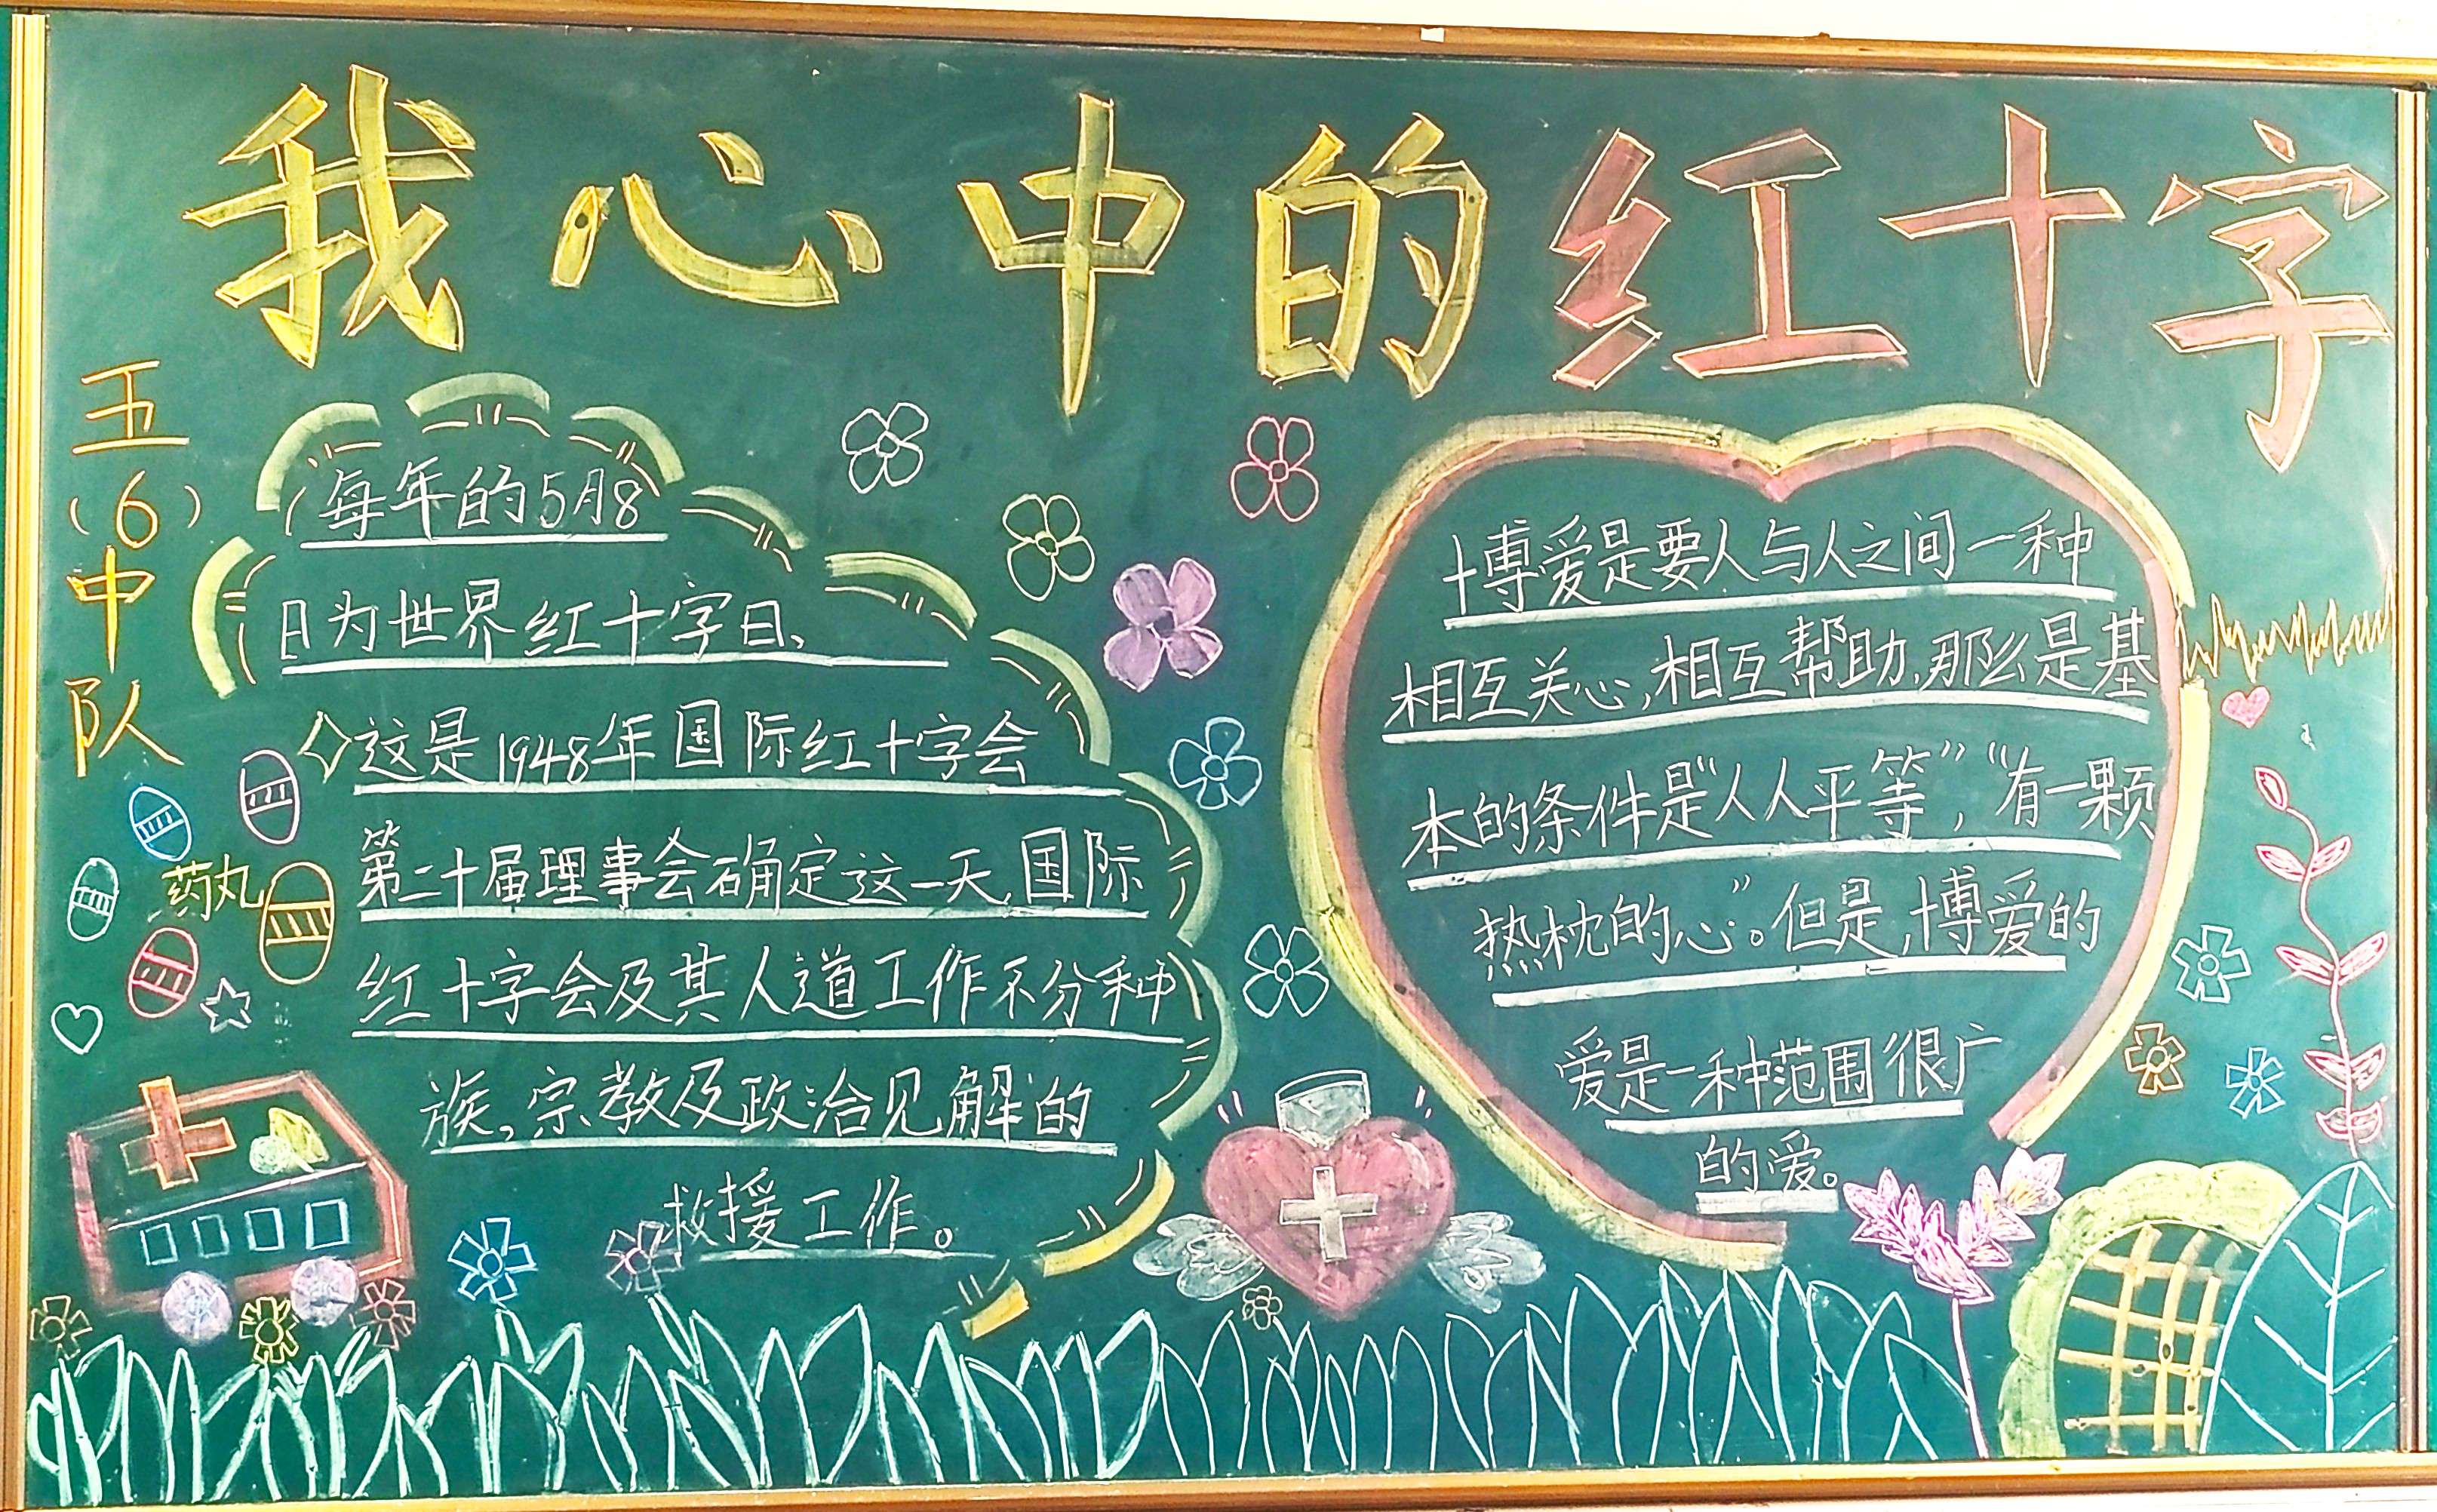 我心中的红十字
五
(6)
中
队
每年的5月8
日为世界红十字日、
这是1948年国际红十字会
第二十届理事会确定这一天,国际
红十字会及其人道工作不分种
族,宗教及政治见解的
救援工作。
药丸
博爱是要人与人之间一种
相互关心,相互帮助,那么是基
本的条件是“人人平等”,“有一颗
热枕的心”。但是,博爱的
爱是一种范围很广
的爱。